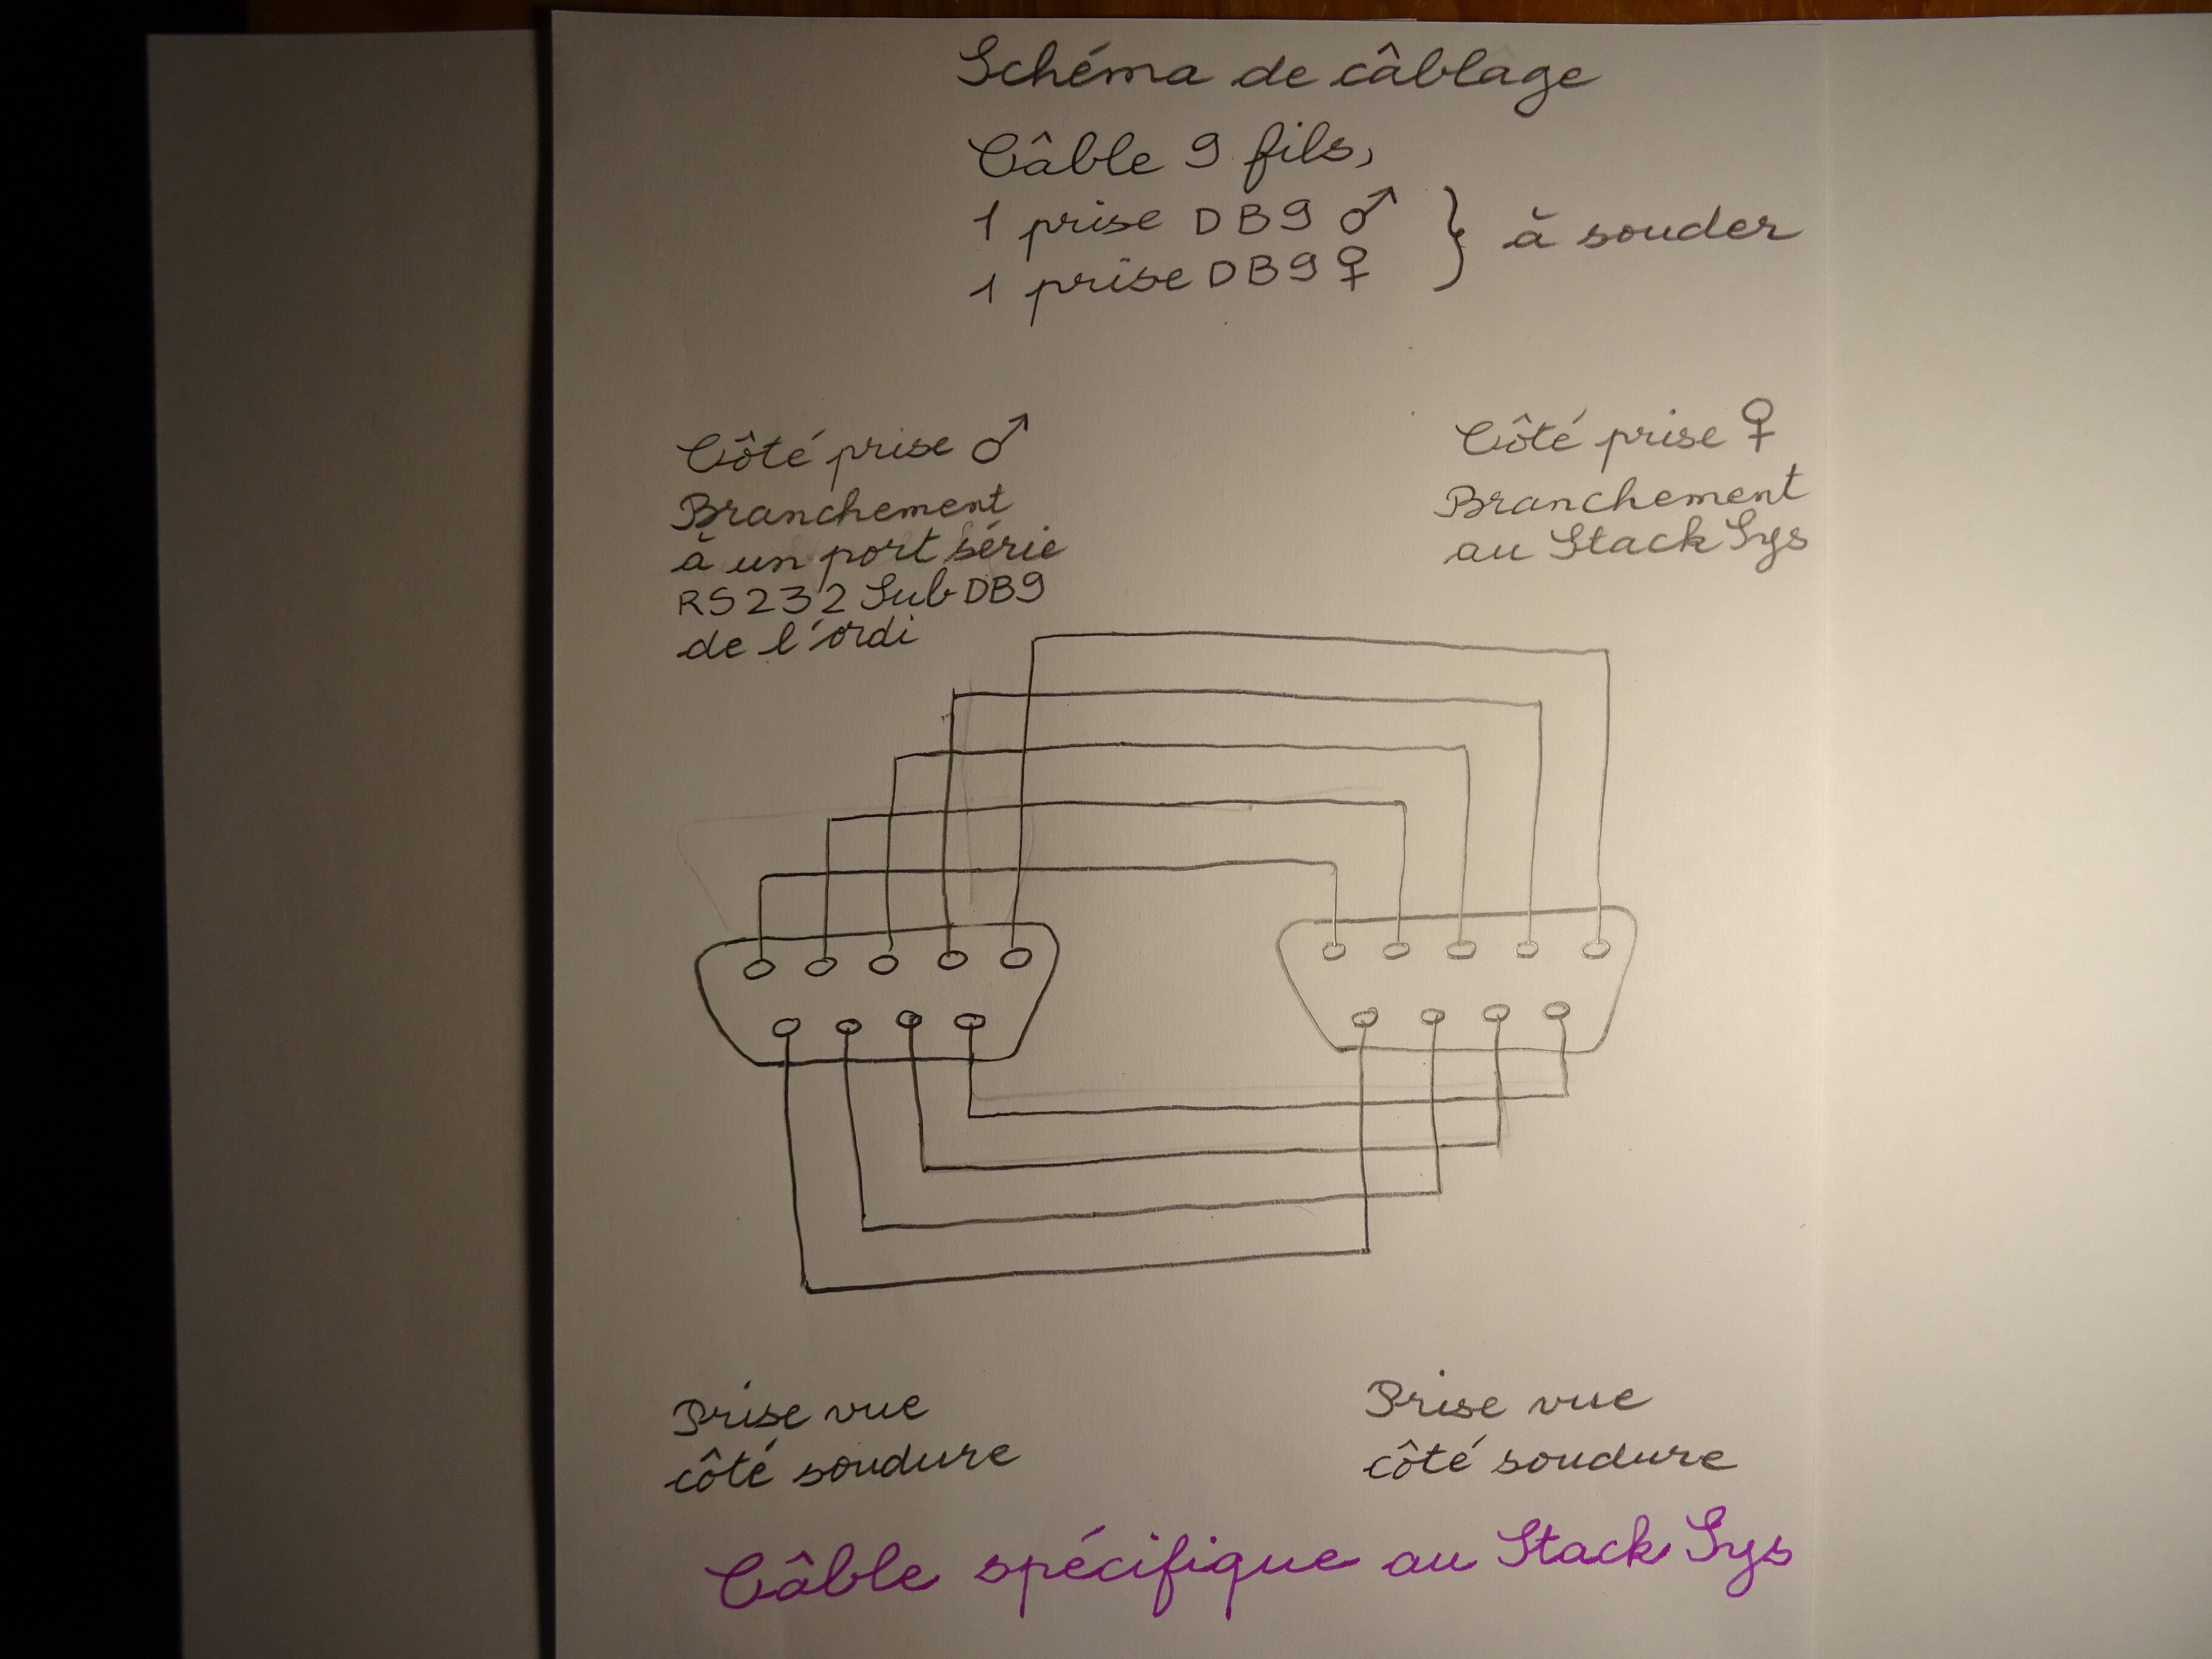 Schéma de câblage
Câble 9 fils,
1 prise DB9 ♂ } à souder
1 prise DB9 ♀
Côté prise ♂
Branchement
à un port série
RS232 Sub DB9
de l'ordi
Côté prise ♀
Branchement
au Stack Sys
Prise vue
côté soudure
Prise vue
côté soudure
Câble spécifique au Stack Sys